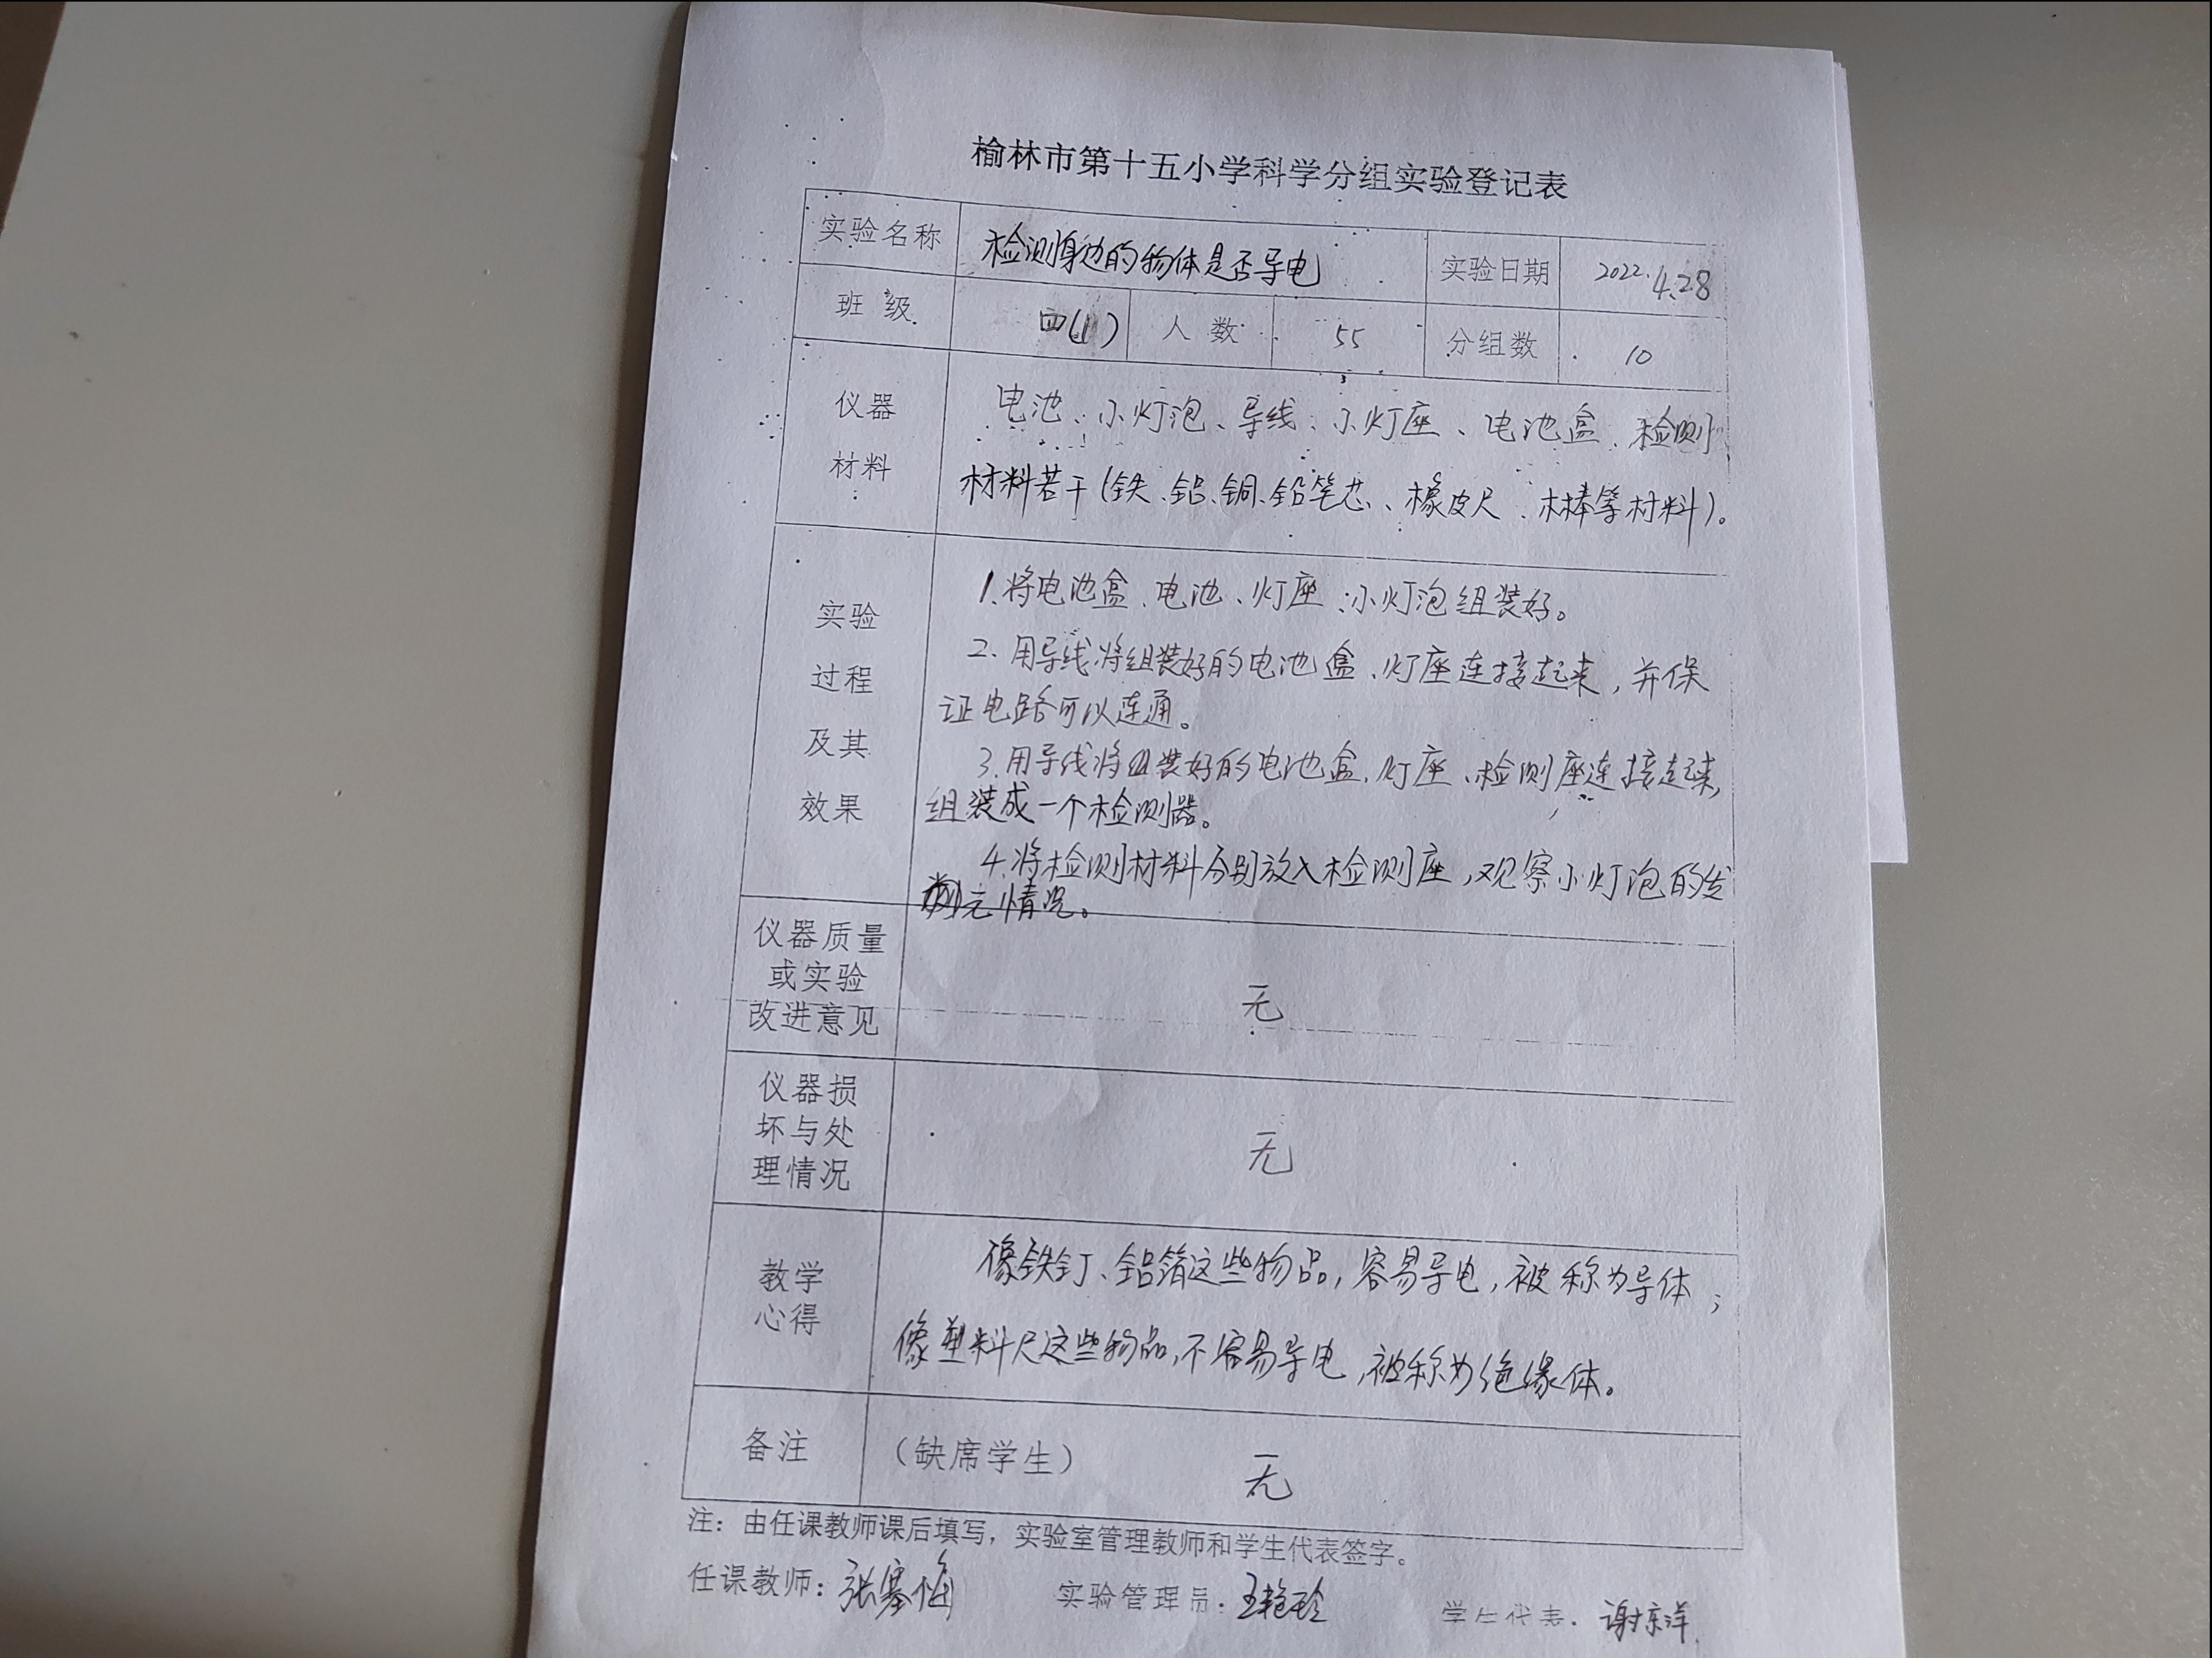 榆林市第十五小学科学分组实验登记表
实验名称 检测身边的物体是否导电 实验日期 2022.4.28
班 级 四(1) 人 数 55 分组数 10
仪器 电池、小灯泡、导线、小灯座、电池盒、检测
材料 材料若干(铁、铝、铜、铅笔芯、橡皮尺、木棒等材料)。
实验
过程
及其
效果
1.将电池盒、电池、灯座、小灯泡组装好。
2.用导线将组装好的电池盒、灯座连接起来,并保
证电路可以连通。
3.用导线将组装好的电池盒、灯座、检测座连接起来,
组装成一个检测器。
4.将检测材料分别放入检测座,观察小灯泡的发
光情况。
仪器质量
或实验
改进意见
无
仪器损
坏与处
理情况
无
教学
心得
像铁钉、铝箔这些物品,容易导电,被称为导体;
像塑料尺这些物品,不容易导电,被称为绝缘体。
备注 (缺席学生) 无
注:由任课教师课后填写,实验室管理教师和学生代表签字。
任课教师: 实验管理员:王艳玲 学生代表:谢东洋